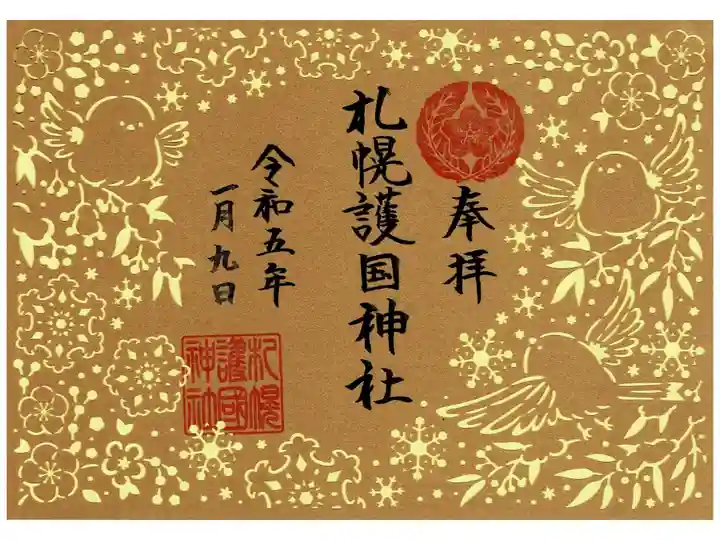 奉拝
札幌護国神社
令和五年
一月九日
札幌
護國
神社